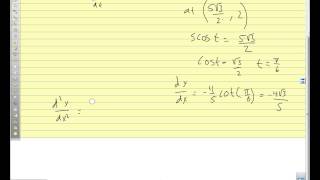 dt
at (5√3/2, 2)
5cost = 5√3/2
cost = √3/2   t = π/6
dy/dx = -4/5 cot(π/6) = -4√3/5
d²y/dx² =